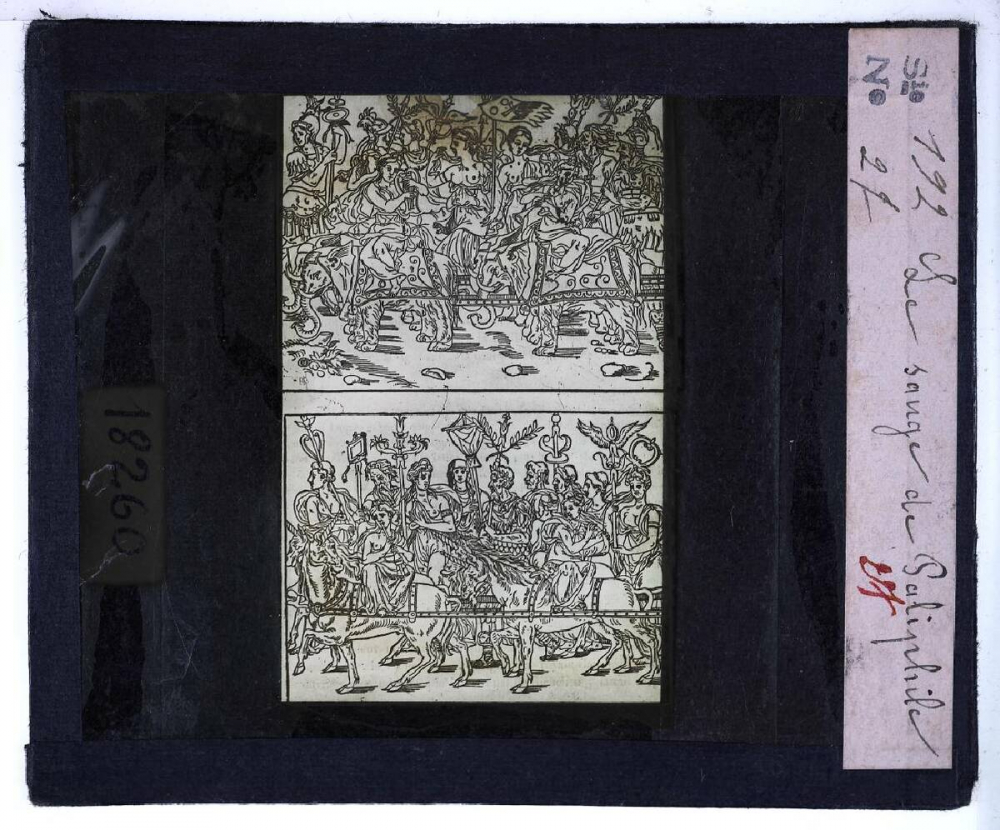 Sie 192 Le songe de Poliphile
No 21
if
18260